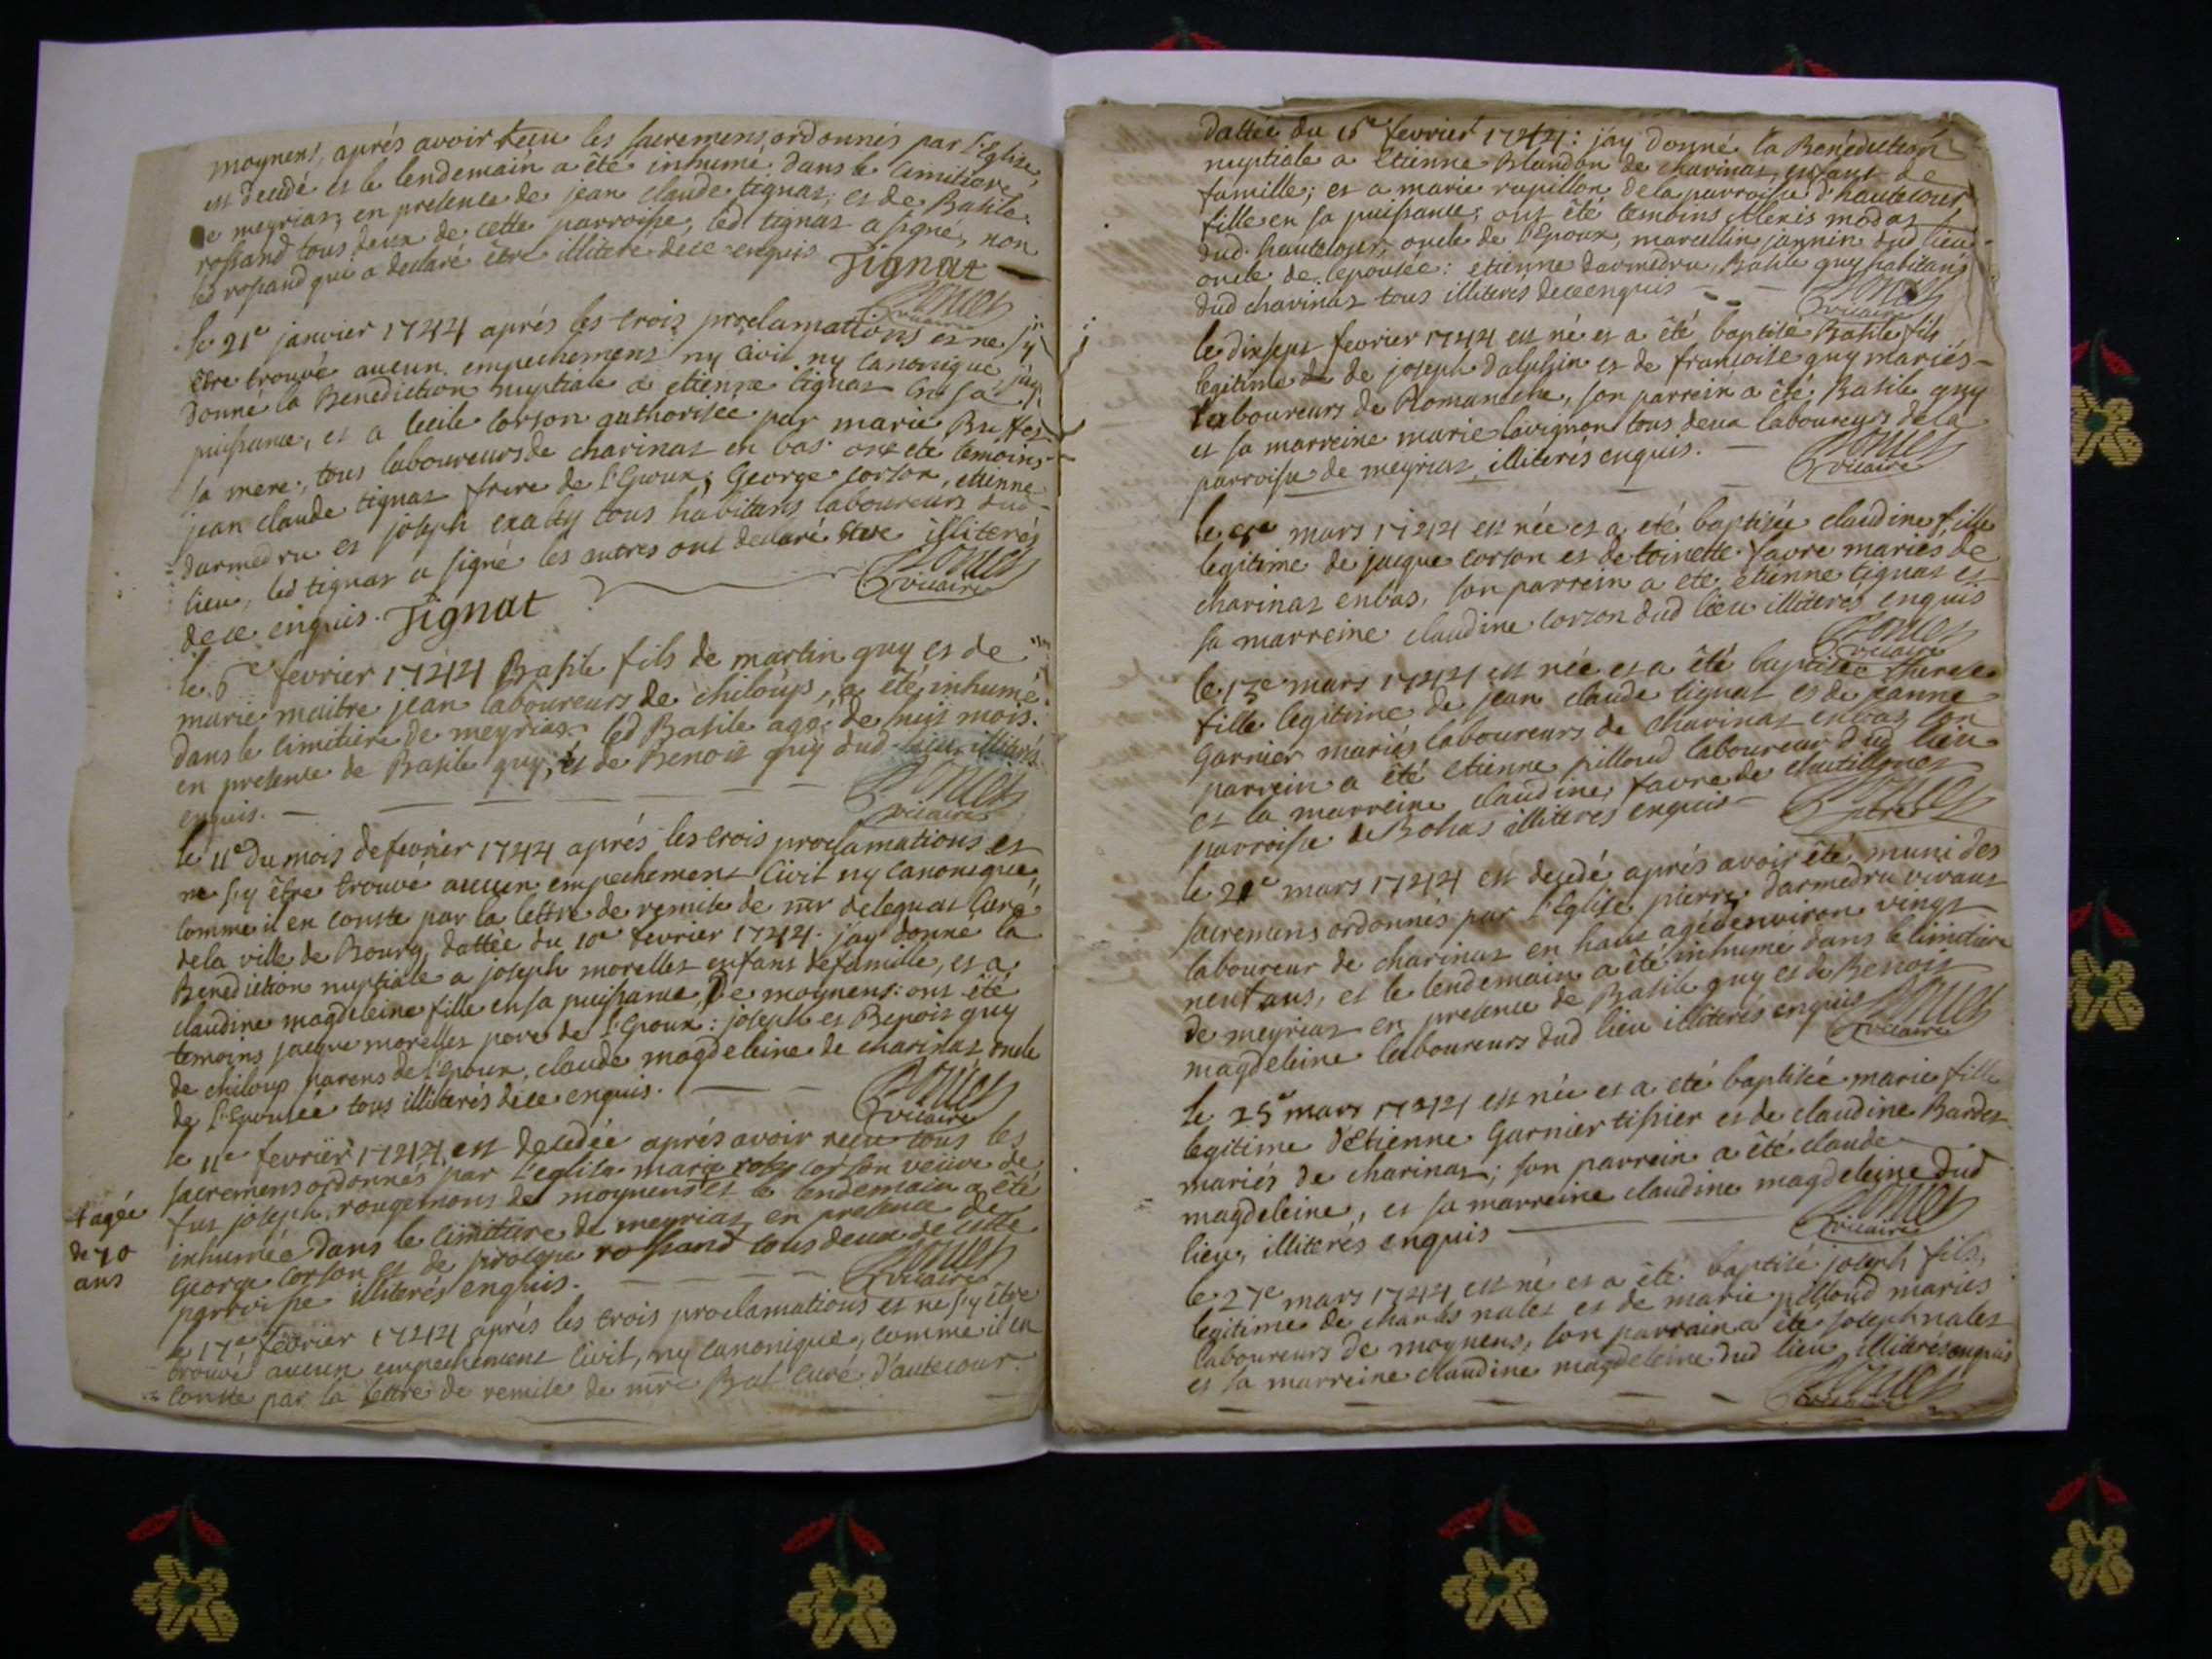 moynens, aprés avoir reçu les sacremens ordonnés par l'Eglise,
est decedé et le lendemain a été inhumé dans le cimitiere
de meyriat, en presence de jean claude tignat, et de Basile
rossand tous deux de cette parroisse, led tignat a signé, non
led rossand qui a declaré être illiteré de ce enquis Tignat
vicaire
le 21e janvier 1744 aprés les trois proclamations et ne s'y
être trouvé aucun empechement ny Civil ny Canonique j'ay
donné la Benediction nuptiale a etienne tignat en sa
puissance, et a cecile corson authorisée par marie Buffet
sa mere, tous laboureurs de charinat en bas. ont été temoins
jean claude tignat frere de l'Epoux; George corson, etienne
darmedru et joseph exalty tous habitans laboureurs dud
lieu, led tignat a signé les autres ont declaré être illiterés
de ce enquis. Tignat
vicaire
le 6e fevrier 1744 Basile fils de martin guy et de
marie maitre jean laboureurs de chiloups, a été inhumé
dans le cimitiere de meyriat led Basile agé de huit mois.
en presence de Basile guy, et de Benoit guy dud lieu illiterés
enquis.
vicaire
le 11e du mois de fevrier 1744 aprés les trois proclamations et
ne s'y être trouvé aucun empechement Civil ny Canonique,
comme il en conste par la lettre de remise de mr deleguat Curé
de la ville de Bourg dattée du 10e fevrier 1744. jay donné la
Benediction nuptiale a joseph morellet enfant de famille, et a
claudine magdeleine fille en sa puissance, De moynens: ont été
temoins jacque morellet pere de l'Epoux: joseph et Benoit guy
de chiloup parens de l'epoux, claude magdeleine de charinat oncle
de l'Epousée tous illiterés de ce enquis.
vicaire
le 11e fevrier 1744 est decedée aprés avoir reçu tous les
sacremens ordonnés par l'eglise marie corson veuve de
fut joseph rougemont de moynens et le lendemain a été
inhumée dans le cimitiere de meyriat en presence de
George corson et de rossand tous deux de cette
parroisse illiterés enquis.
vicaire
+ agée
de 70
ans
le 17e fevrier 1744 aprés les trois proclamations et ne s'y être
trouvé aucun empechement Civil, ny canonique, comme il en
conste par la lettre de remise de mre Bal Curé d'autecour
dattée du 16e fevrier 1744: jay donné la Benediction
nuptiale a Etienne Blandon de charinat, enfant de
famille; et a marie rapillon de la parroisse d'hautecour
fille en sa puissance; ont été temoins Alexis modas
dud. hautecour, oncle de l'Epoux, marcellin jannin dud lieu
oncle de l'epousée: etienne darmedru, Basile guy habitans
dud charinat tous illiterés de ce enquis
vicaire
le dixsept fevrier 1744 est né et a été baptisé Basile fils
legitime de de joseph dalphin et de francoise guy mariés
laboureurs de Romaneche, son parrein a été, Basile guy
et sa marreine marie lavignon tous deux laboureurs de la
parroisse de meyriat, illiterés enquis.
vicaire
le mars 1744 est née et a été baptisée claudine fille
legitime de jacque corson et de toinette favre mariés de
charinat en bas, son parrein a été etienne tignat et
sa marreine claudine corson dud lieu illiterés enquis
vicaire
le 13e mars 1744 est née et a été baptisée therese
fille legitime de jean claude tignat et de jeanne
Garnier mariés laboureurs de charinat en bas son
parrein a été Etienne pilloud laboureur dud lieu
et la marreine claudine favre de
parroisse de Bohas illiterés enquis
vicaire
le 21e mars 1744 est decedé aprés avoir été muni des
sacremens ordonnés par l'Eglise pierre darmedru vivant
laboureur de charinat en haut agé environ vingt
neuf ans, et le lendemain a été inhumé dans le cimitiere
de meyriat en presence de Basile guy et de Benoit
magdeleine laboureurs dud lieu illiterés enquis
vicaire
le 25e mars 1744 est née et a été baptisée marie fille
legitime d'Etienne Garnier tissier et de claudine Bardet
mariés de charinat; son parrein a été claude
magdeleine, et sa marreine claudine magdeleine dud
lieu, illiterés enquis
vicaire
le 27e mars 1744 est né et a été baptisé joseph fils,
legitime de charles nalet et de marie pilloud mariés
laboureurs de moynens, son parrain a été joseph nalet
et sa marreine claudine magdeleine dud lieu illiterés enquis